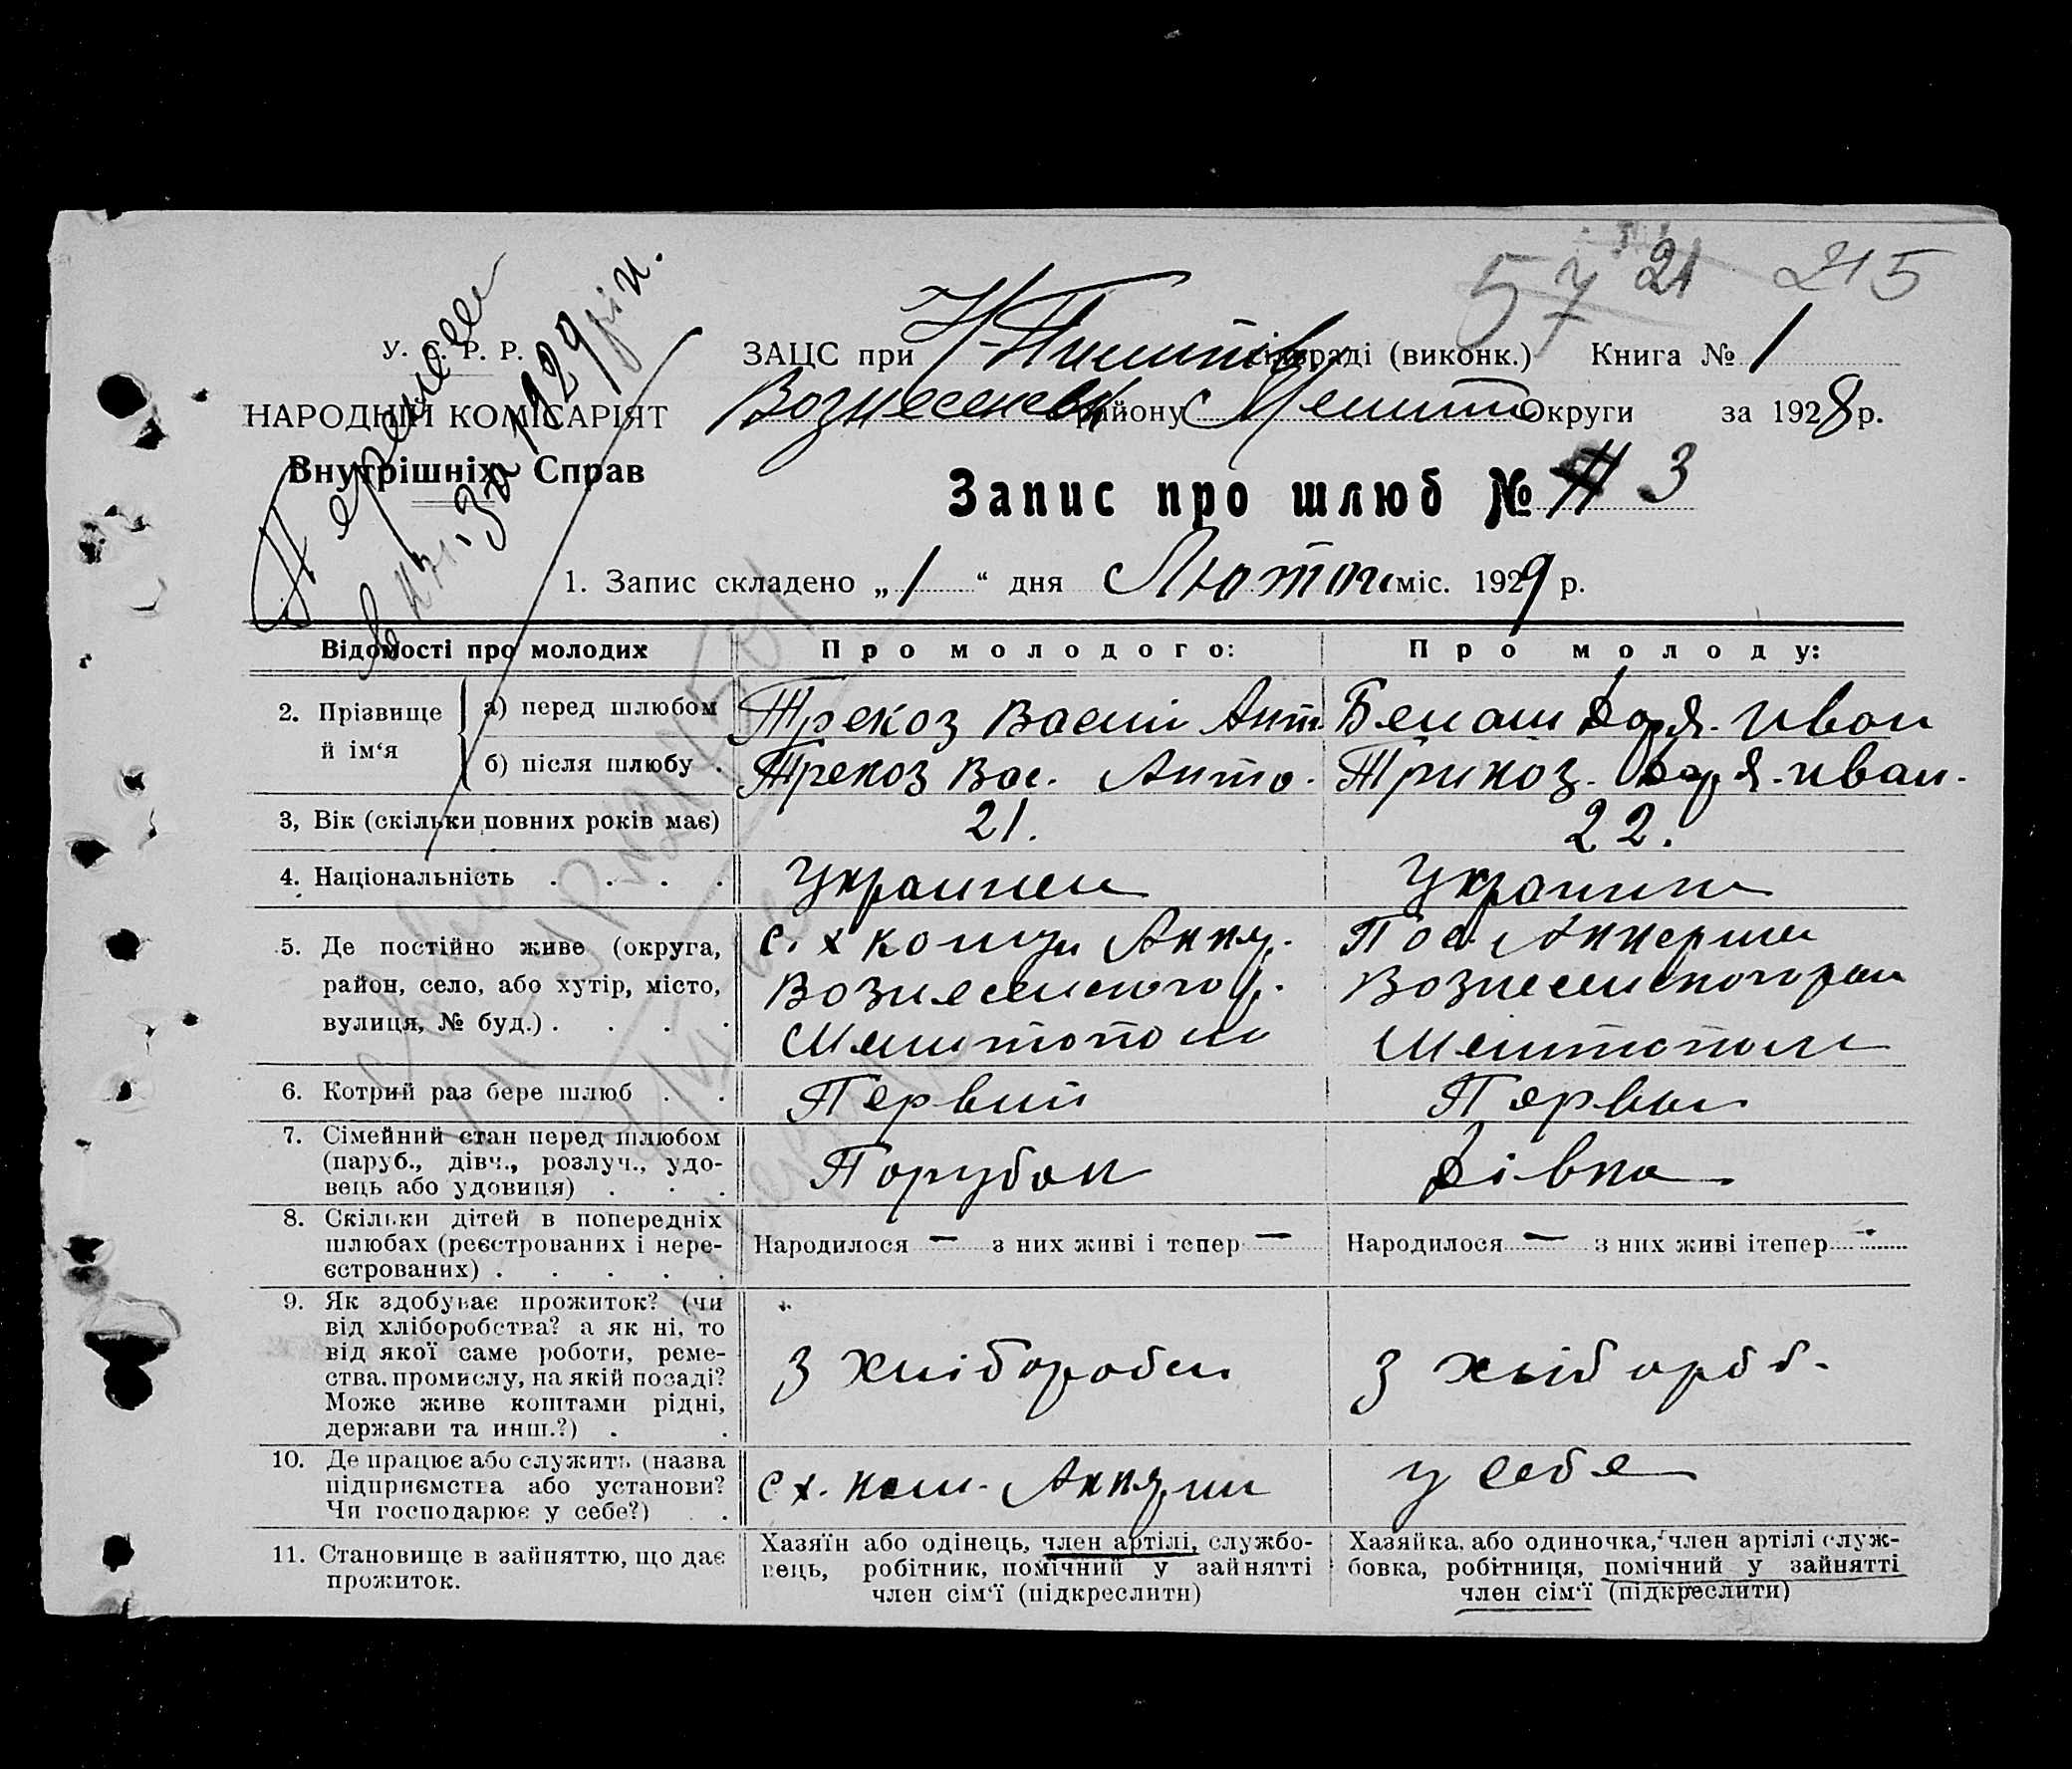 57 21 215
У. С. Р. Р.
НАРОДНІЙ КОМІСАРІЯТ
Внутрішніх Справ
за 1929 рік.
ЗАЦС при сільраді (виконк.) Книга № 1
Вознесенськ району Меліто Округи за 1928 р.
Запис про шлюб № 3
1. Запис складено „ 1 “ дня Лютого міс. 1929 р.
Відомості про молодих Про молодого: Про молоду:
2. Прізвище й ім‘я
а) перед шлюбом Трекоз Васил Ант. Белаш Дар.я. Иван
б) після шлюбу . Трекоз Вас. Анто. Трикоз. Дар.я. Иван.
3, Вік (скільки повних років має) 21. 22.
4. Національність . . . . Украинец Украинк
5. Де постійно живе (округа,
район, село, або хутір, місто,
вулиця, № буд.) . . . .
с. х комун
Вознесенского р.
Мелитопол
Пос.
Вознесенского рай
Мелитопол
6. Котрий раз бере шлюб . . Первий Первы
7. Сімейний стан перед шлюбом
(паруб., дівч., розлуч., удо-
вець або удовиця) . . .
Порубок Дівка
8. Скільки дітей в попередніх
шлюбах (реєстрованих і нере-
єстрованих) . . . . .
Народилося — з них живі і тепер — Народилося — з них живі ітепер —
9. Як здобуває прожиток? (чи
від хліборобства? а як ні, то
від якої саме роботи, реме-
ства, промислу, на якій посаді?
Може живе коштами рідні,
держави та инш.?) . .
З хлібороби З хлібороб.
10. Де працює або служить (назва
підприємства або установи?
Чи господарює у себе?) . .
с х. ком. у себе
11. Становище в зайняттю, що дає
прожиток.
Хазяїн або одінець, член артілі, службо-
вець, робітник, помічний у зайнятті
член сім‘ї (підкреслити)
Хазяйка, або одиночка, член артілі служ-
бовка, робітниця, помічний у зайнятті
член сім‘ї (підкреслити)